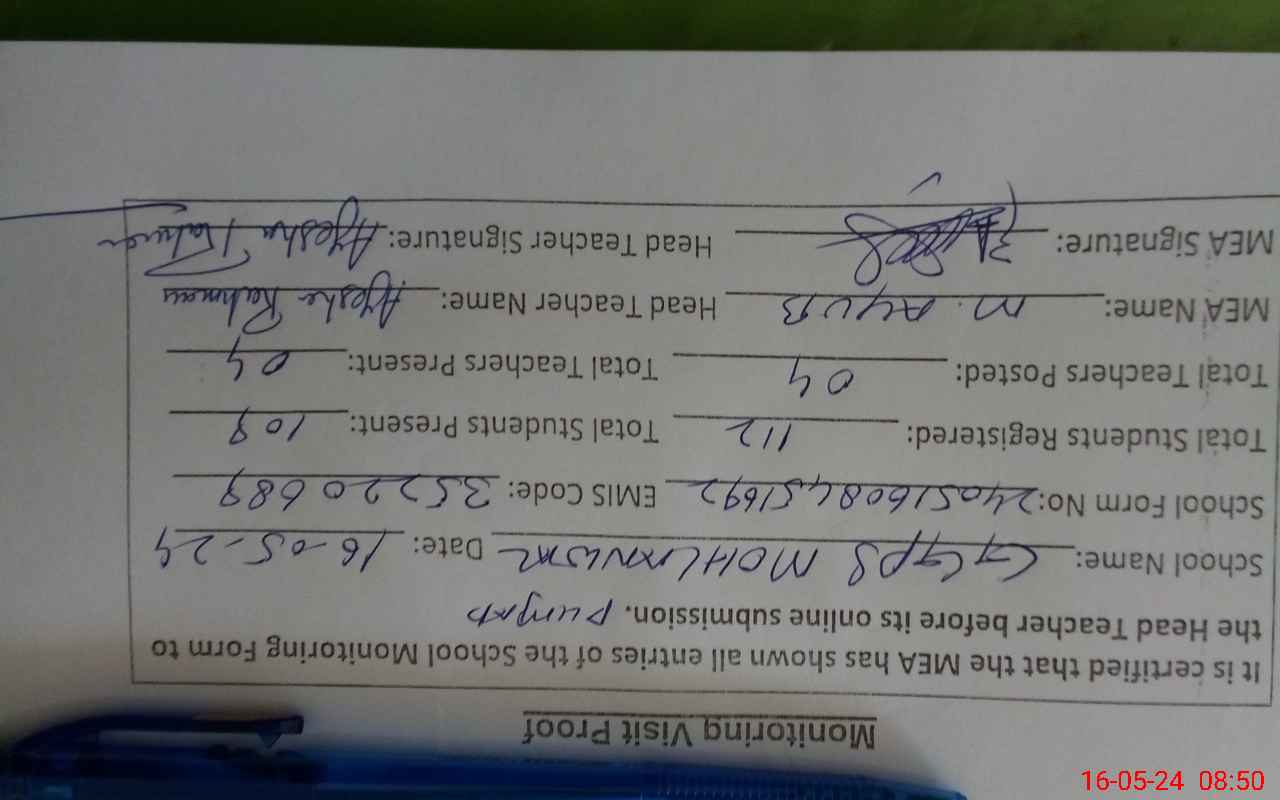 Monitoring Visit Proof
It is certified that the MEA has shown all entries of the School Monitoring Form to
the Head Teacher before its online submission.
School Name: GGPS Date: 16-05-24
School Form No: EMIS Code: 35220689
Total Students Registered: 112 Total Students Present: 109
Total Teachers Posted: 04 Total Teachers Present: 04
MEA Name: M. AYUB Head Teacher Name: Ayesha Rahman
MEA Signature: Head Teacher Signature: Ayesha
16-05-24 08:50